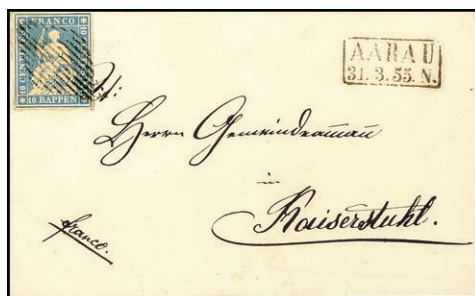 FRANCO
10 RAPPEN
AARAU
31. 3. 55. N.
Herrn Gemeindeamau
in
Kaiserstuhl.
franco.